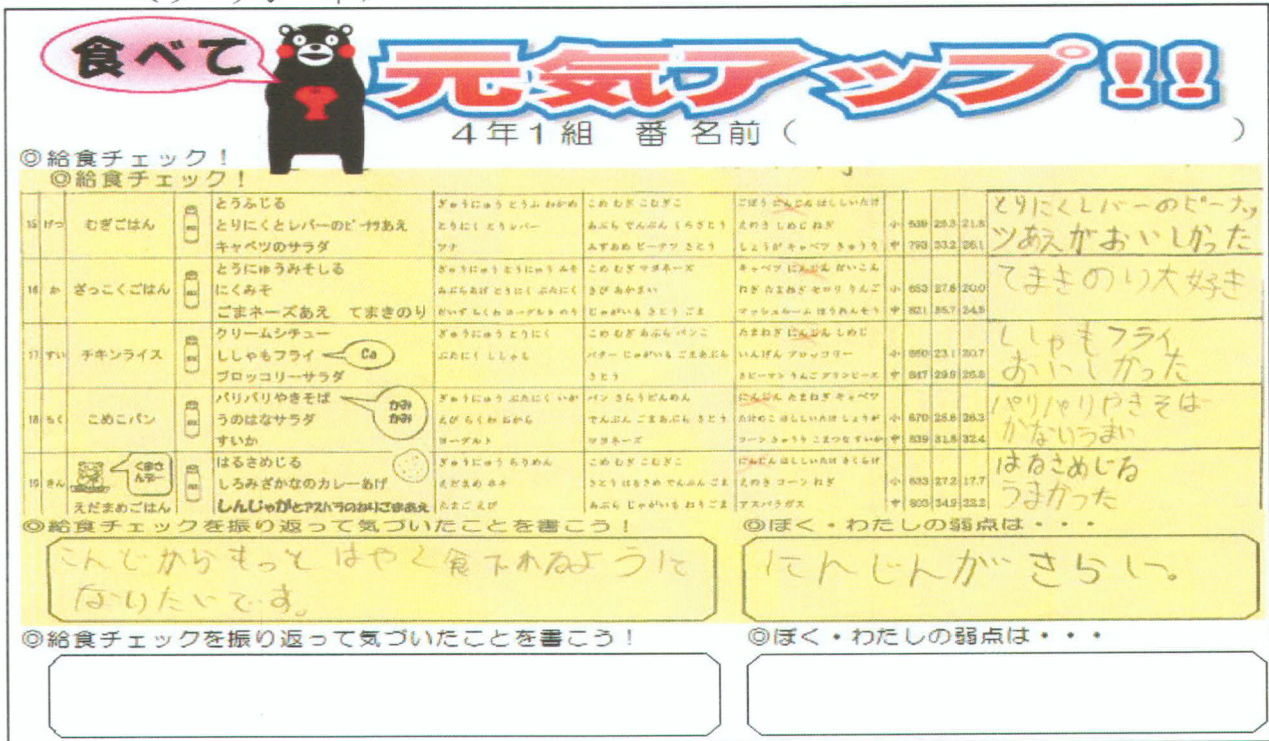 食べて
元気アップ!!
4年1組 番 名前( )
◎給食チェック!
◎給食チェック!
15 げつ むぎごはん
とうふじる
とりにくとレバーのピーナツあえ
キャベツのサラダ
ぎゅうにゅう とうふ わかめ
とりにく とりレバー
ツナ
こめ むぎ こむぎこ
あぶら でんぷん くろざとう
みずあめ ピーナツ さとう
ごぼう にんじん ほししいたけ
えのき しめじ ねぎ
しょうが キャベツ きゅうり
とりにくレバーのピーナッ
ツあえがおいしかった
16 か ざっこくごはん
とうにゅうみそしる
にくみそ
ごまネーズあえ てまきのり
ぎゅうにゅう とうにゅう みそ
あぶらあげ とうにく ぶたにく
だいず ちくわ ヨーグルト のり
こめ むぎ マヨネーズ
きび あかまい
じゃがいも さとう ごま
キャベツ にんじん だいこん
ねぎ たまねぎ セロリ りんご
マッシュルーム ほうれんそう
てまきのり大好き
17 すい チキンライス
クリームシチュー
ししゃもフライ
Ca
ブロッコリーサラダ
ぎゅうにゅう とりにく
ぶたにく ししゃも
こめ むぎ あぶら パンこ
バター じゃがいも ごまあぶら
さとう
たまねぎ にんじん しめじ
いんげん ブロッコリー
ししゃもフライ
おいしかった
18 もく こめこパン
パリパリやきそば
うのはなサラダ
すいか
かみ
かみ
ぎゅうにゅう ぶたにく いか
えび ちくわ おから
ヨーグルト
パン さらうどんめん
でんぷん ごまあぶら さとう
マヨネーズ
にんじん たまねぎ キャベツ
たけのこ ほししいたけ しょうが
コーン きゅうり こまつな すいか
パリパリやきそば
19 きん えだまめごはん
くまさ
んデー
はるさめじる
しろみざかなのカレーあげ
しんじゃがとアスパラのねりごまあえ
ぎゅうにゅう ちりめん
えだまめ ホキ
たまご えび
こめ むぎ こむぎこ
さとう はるさめ でんぷん ごま
あぶら じゃがいも ねりごま
にんじん ほししいたけ きくらげ
えのき コーン ねぎ
アスパラガス
はるさめじる
うまかった
◎給食チェックを振り返って気づいたことを書こう!
◎ぼく・わたしの弱点は・・・
こんどからもっとはやく食べれるように
なりたいです。
にんじんがきらい。
◎給食チェックを振り返って気づいたことを書こう!
◎ぼく・わたしの弱点は・・・